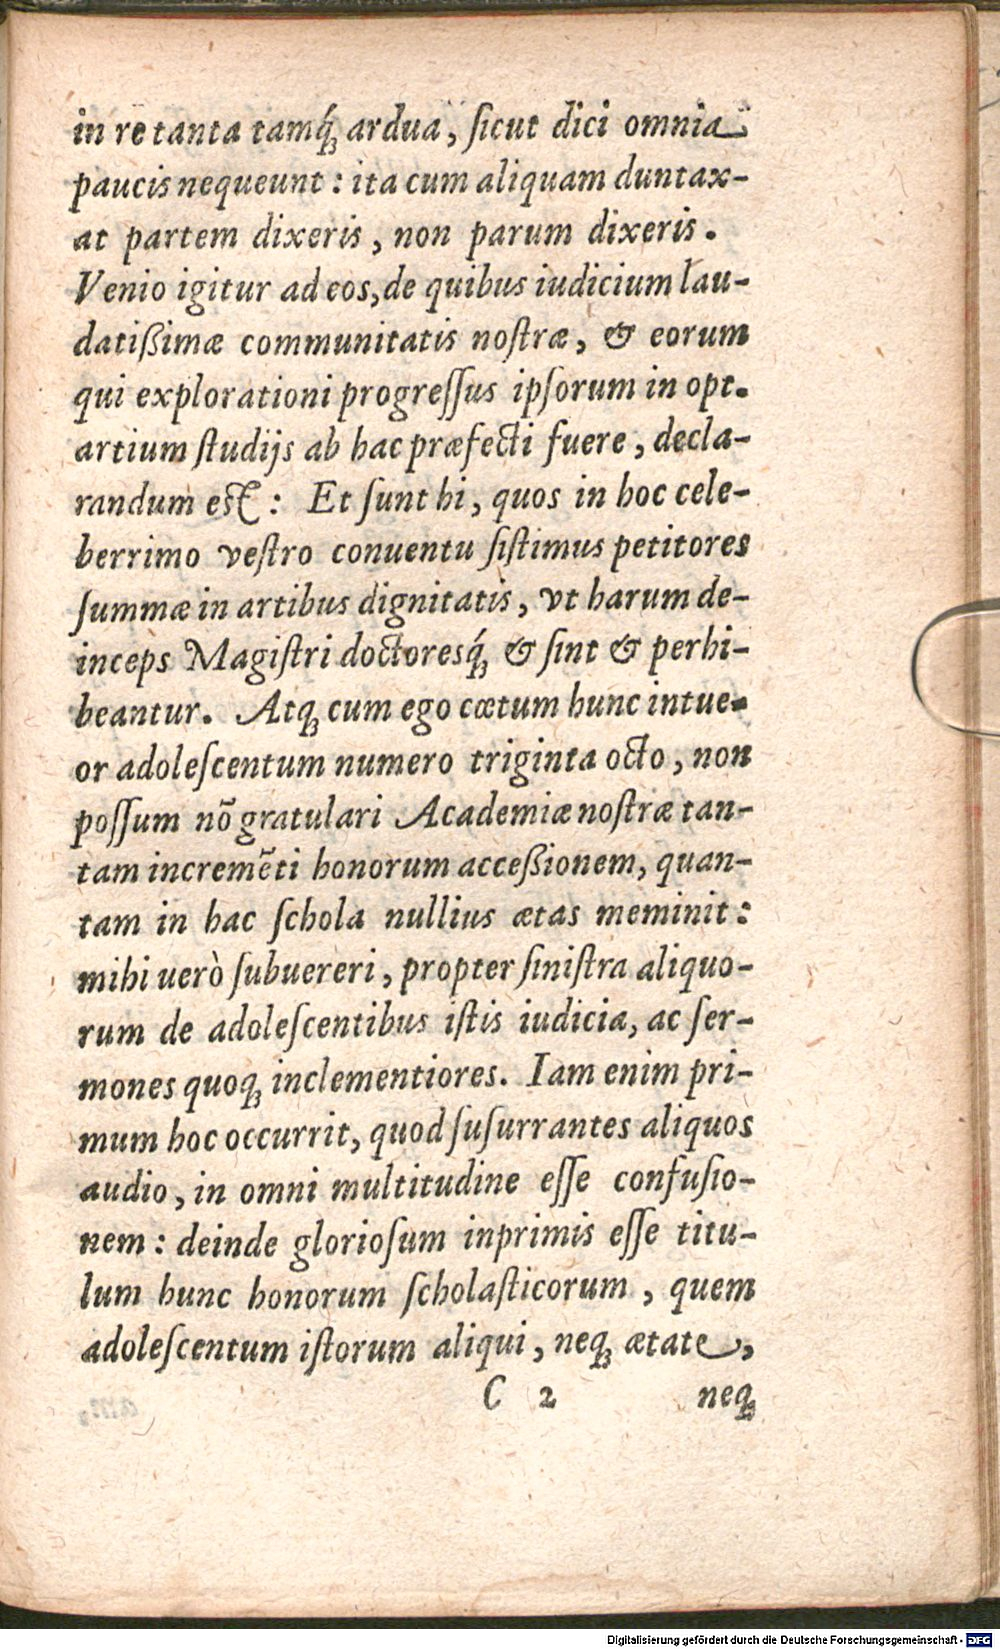 in re tanta tamq́ꝫ ardua, ſicut dici omnia
paucis nequeunt: ita cum aliquam duntax-
at partem dixeris, non parum dixeris.
Venio igitur ad eos, de quibus iudicium lau-
datißimæ communitatis noſtræ, & eorum
qui explorationi progreſſus ipſorum in opt.
artium ſtudijs ab hac præfecti fuere, decla-
randum eſt: Et ſunt hi, quos in hoc cele-
berrimo veſtro conuentu ſiſtimus petitores
ſummæ in artibus dignitatis, vt harum de-
inceps Magiſtri doctoresq́ꝫ & ſint & perhi-
beantur. Atqꝫ cum ego cœtum hunc intue-
or adoleſcentum numero triginta octo, non
poſſum nō gratulari Academiæ noſtræ tan-
tam incremēti honorum acceßionem, quan-
tam in hac ſchola nullius ætas meminit:
mihi uerò ſubuereri, propter ſiniſtra aliquo-
rum de adoleſcentibus iſtis iudicia, ac ſer-
mones quoqꝫ inclementiores. Iam enim pri-
mum hoc occurrit, quod ſuſurrantes aliquos
audio, in omni multitudine eſſe confuſio-
nem: deinde glorioſum inprimis eſſe titu-
lum hunc honorum ſcholaſticorum, quem
adoleſcentum iſtorum aliqui, neqꝫ ætate,
C 2 neqꝫ
Digitalisierung gefördert durch die Deutsche Forschungsgemeinschaft - DFG